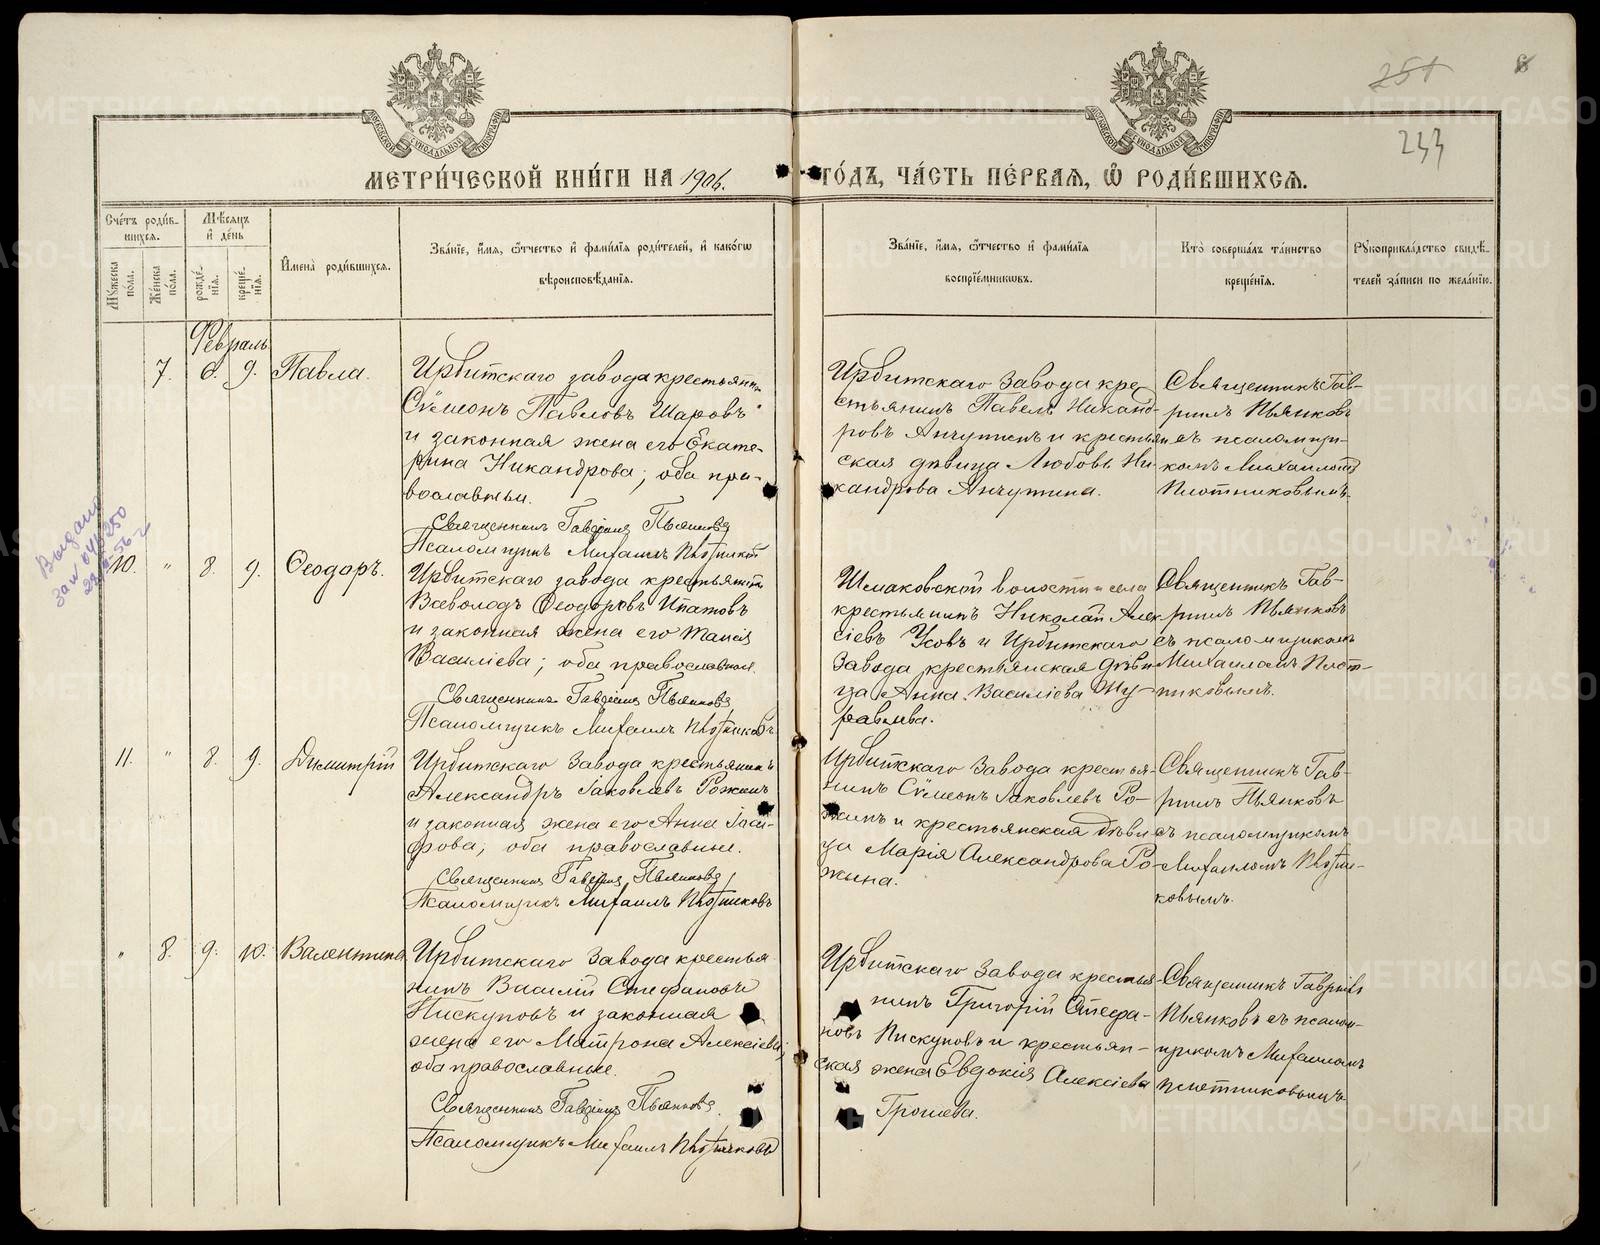 251
8
243
МЕТРИ́ЧЕСКОЙ КНИ́ГИ НА 1906.
ГО́ДЪ, ЧА́СТЬ ПЕ́РВАЯ, Ѽ РОДИ́ВШИХСЯ.
Сче́тъ роди́в-
шихся.
Мѣ́сяцъ
и҆ де́нь
Мꙋ́жеска по́ла.
Же́нска по́ла.
рожде́-
нїѧ.
креще́-
нїѧ.
И҆мена̀ роди́вшихся.
Зва́нїе, и҆́мя, ѻ҆́тчество и҆ фами́лїя роди́телей, и҆ како́гѡ
вѣроисповѣ́данїя.
Зва́нїе, и҆́мя, ѻ҆́тчество и҆ фами́лїя
воспрїе́мникѡвъ.
Кто̀ соверша́лъ та́инство
креще́нїя.
Рꙋкоприкла́дство свидѣ́-
телей за́писи по жела́нїю.
Февраль
7. 6. 9. Павла.
Ирбитскаго завода крестьянин
Сѵмеонъ Павловъ Шаровъ
и законная жена его Екате-
рина Никандрова; оба пра-
вославныи.
Священникъ Гавріилъ Пьянковъ
Псаломщикъ Михаилъ Плотников
Ирбитскаго Завода кре-
стьянинъ ПавелъНиканд-
ровъ Анчутинъ и крестьян
ская дѣвица Любовь Ни-
кандрова Анчутина.
Священникъ Гав-
риилъ Пьянковъ
съ псаломщи-
комъ Михаиломъ
Плотниковымъ.
Выдано
10. " 8. 9. Ѳеодоръ.
Ирбитскаго завода крестьянин
Всеволодъ Ѳеодоровъ Ипатовъ
и законная жена его Таисія
Василіева; оба православныи.
Священникъ Гавріилъ Пьянковъ
Псаломщикъ Михаилъ Плотниковъ
Шмаковской волости и села
крестьянинъ Николай Алек
сіевъ Усовъ и Ирбитскаго
Завода крестьянская дѣви
ца Анна Василіева Жу-
равлева.
Священникъ Гав-
риилъ Пьянковъ
съ псаломщикомъ
Михаиломъ Плот-
никовымъ.
11. " 8. 9. Димитрій
Ирбитскаго Завода крестьянинъ
Александръ Іаковлевъ Рожинъ
и законная жена его Анна
оба православные.
Священникъ Гавріилъ Пьянковъ
Псаломщикъ Михаилъ Плотниковъ
Ирбитскаго Завода крестья-
нинъ Сѵмеонъ Іаковлевъ Ро-
жинъ и крестьянская дѣви
ца Марія Александрова Ро-
жина.
Священникъ Гав-
риилъ Пьянковъ
съ псаломщикомъ
Михаиломъ Плотни-
ковымъ.
" 8. 9. 10. Валентина
Ирбитскаго Завода крестья
нинъ Василій Стефановъ
Пискуновъ и законная
жена его Матрона Алексіева;
оба православные.
Священникъ Гавріилъ Пьянковъ
Псаломщикъ Михаилъ Плотниковъ
Ирбитскаго Завода крестья
нинъ Григорій Стефа-
новъ Пискуновъ и крестьян-
ская жена Евдокія Алексіева
Грошева.
Священникъ Гавріилъ
Пьянковъ съ псалом-
щикомъ Михаиломъ
Плотниковымъ